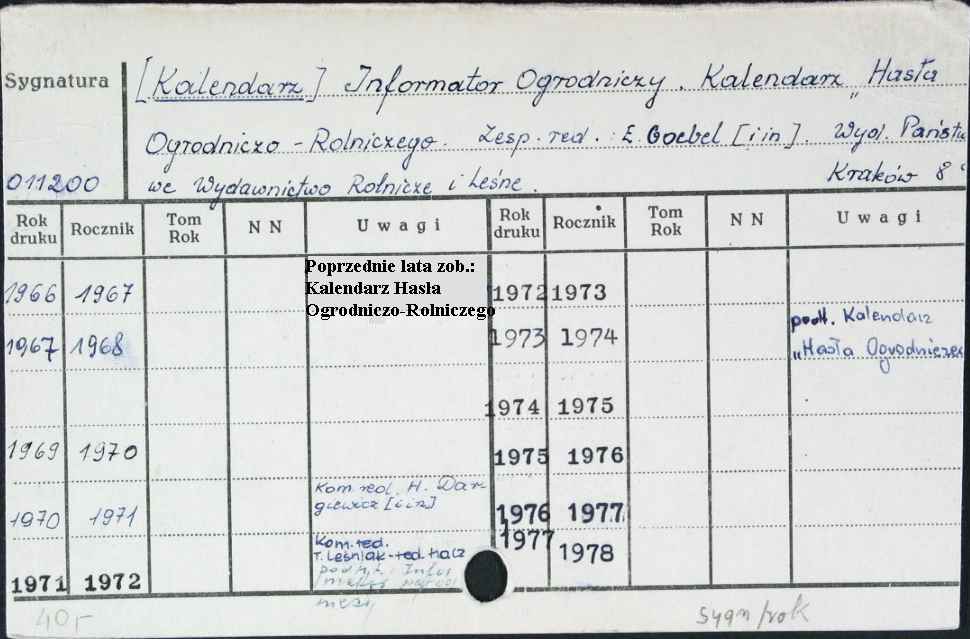 Sygnatura
[Kalendarz] Informator Ogrodniczy. Kalendarz „Hasła
Ogrodniczo-Rolniczego. Zesp. red.: E. Goebel [i in]. Wyd. Państwo
011200 we Wydawnictwo Rolnicze i Leśne. Kraków 8°
Rok druku Rocznik Tom Rok N N Uwagi Rok druku Rocznik Tom Rok N N Uwagi
Poprzednie lata zob.:
1966 1967 Kalendarz Hasła 1972 1973
Ogrodniczo-Rolniczego
podt. Kalendarz
1967 1968 1973 1974
„Hasła Ogrodniczeg
1974 1975
1969 1970 1975 1976
Kom. red. H. War-
giewicz [i in]
1970 1971 1976 1977
Kom. red. 1977
T. Leśniak-red. nacz 1978
podtyt. Infor
1971 1972
40,- sygn/rok